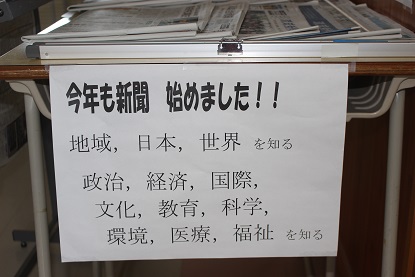 今年も新聞　始めました！！
地域，日本，世界 を知る
政治，経済，国際，
文化，教育，科学，
環境，医療，福祉 を知る